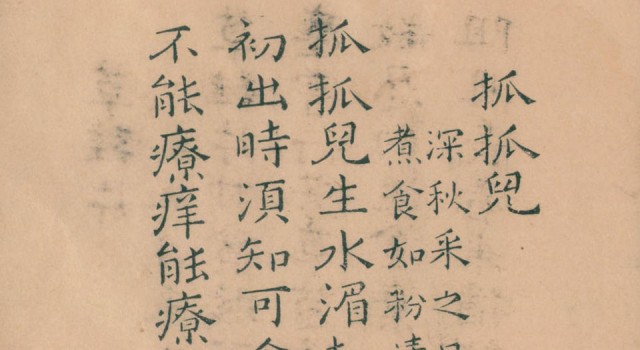 抓抓兒
深秋采之
煮食如粉
抓抓兒生水湄
初出時湏知可
不能療痒能療